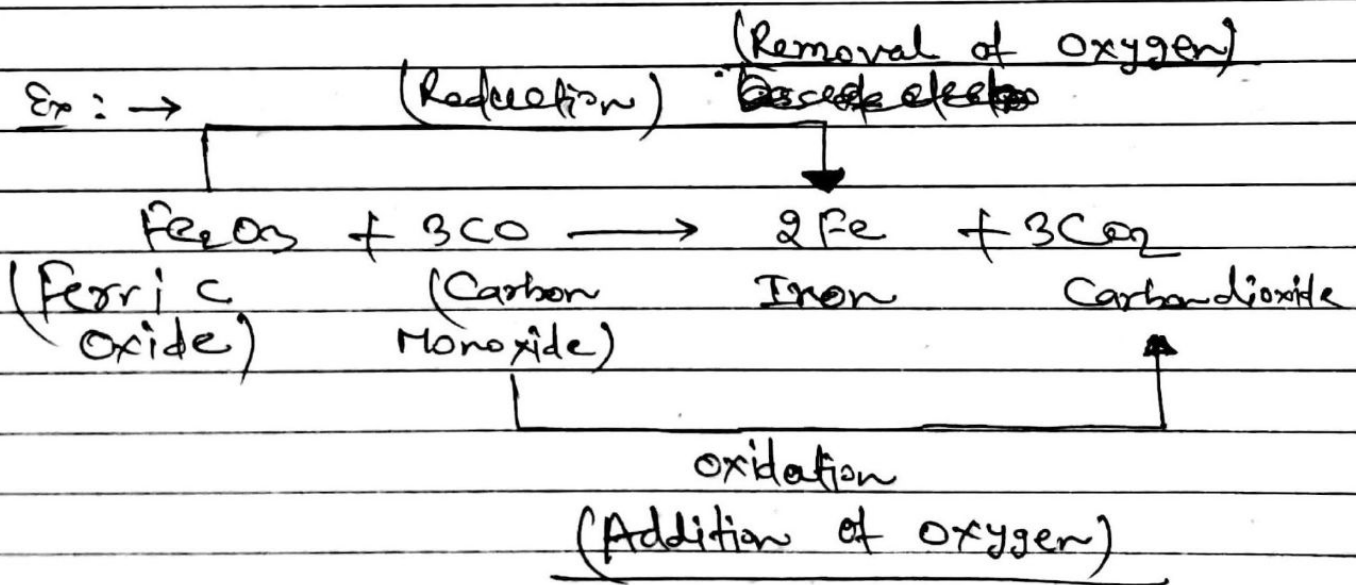 (Removal of oxygen)
Ex : → (Reduction)
Fe2O3 + 3CO → 2Fe + 3CO2
(Ferric (Carbon Iron Carbondioxide
Oxide) Monoxide)
oxidation
(Addition of oxygen)